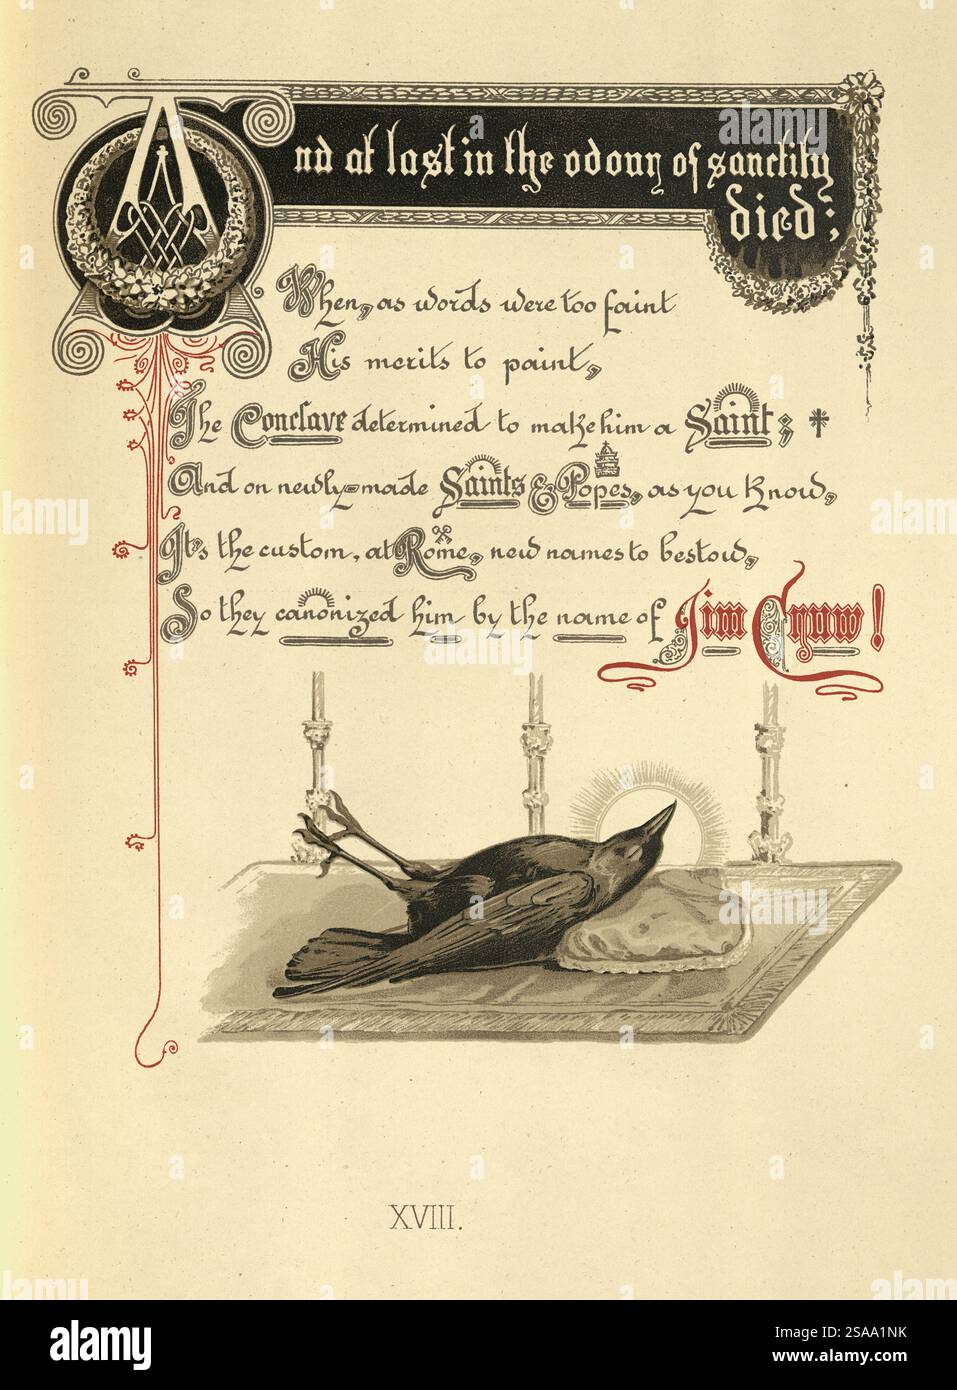 And at last in the odour of sanctity
died;
When, as words were too faint
His merits to paint,
The Conclave determined to make him a Saint;
And on newly-made Saints & Popes, as you know,
It's the custom, at Rome, new names to bestow,
So they canonized him by the name of Jim Crow!
XVIII.
alamy
Image ID: 2SAA1NK
www.alamy.com